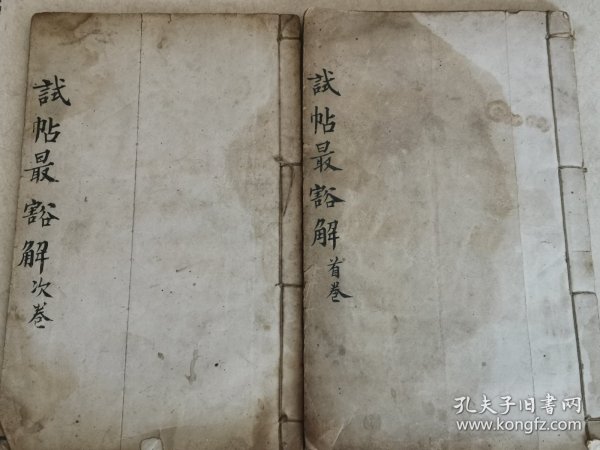 試帖最豁解首卷
試帖最豁解次卷
孔夫子旧書网
www.kongfz.com